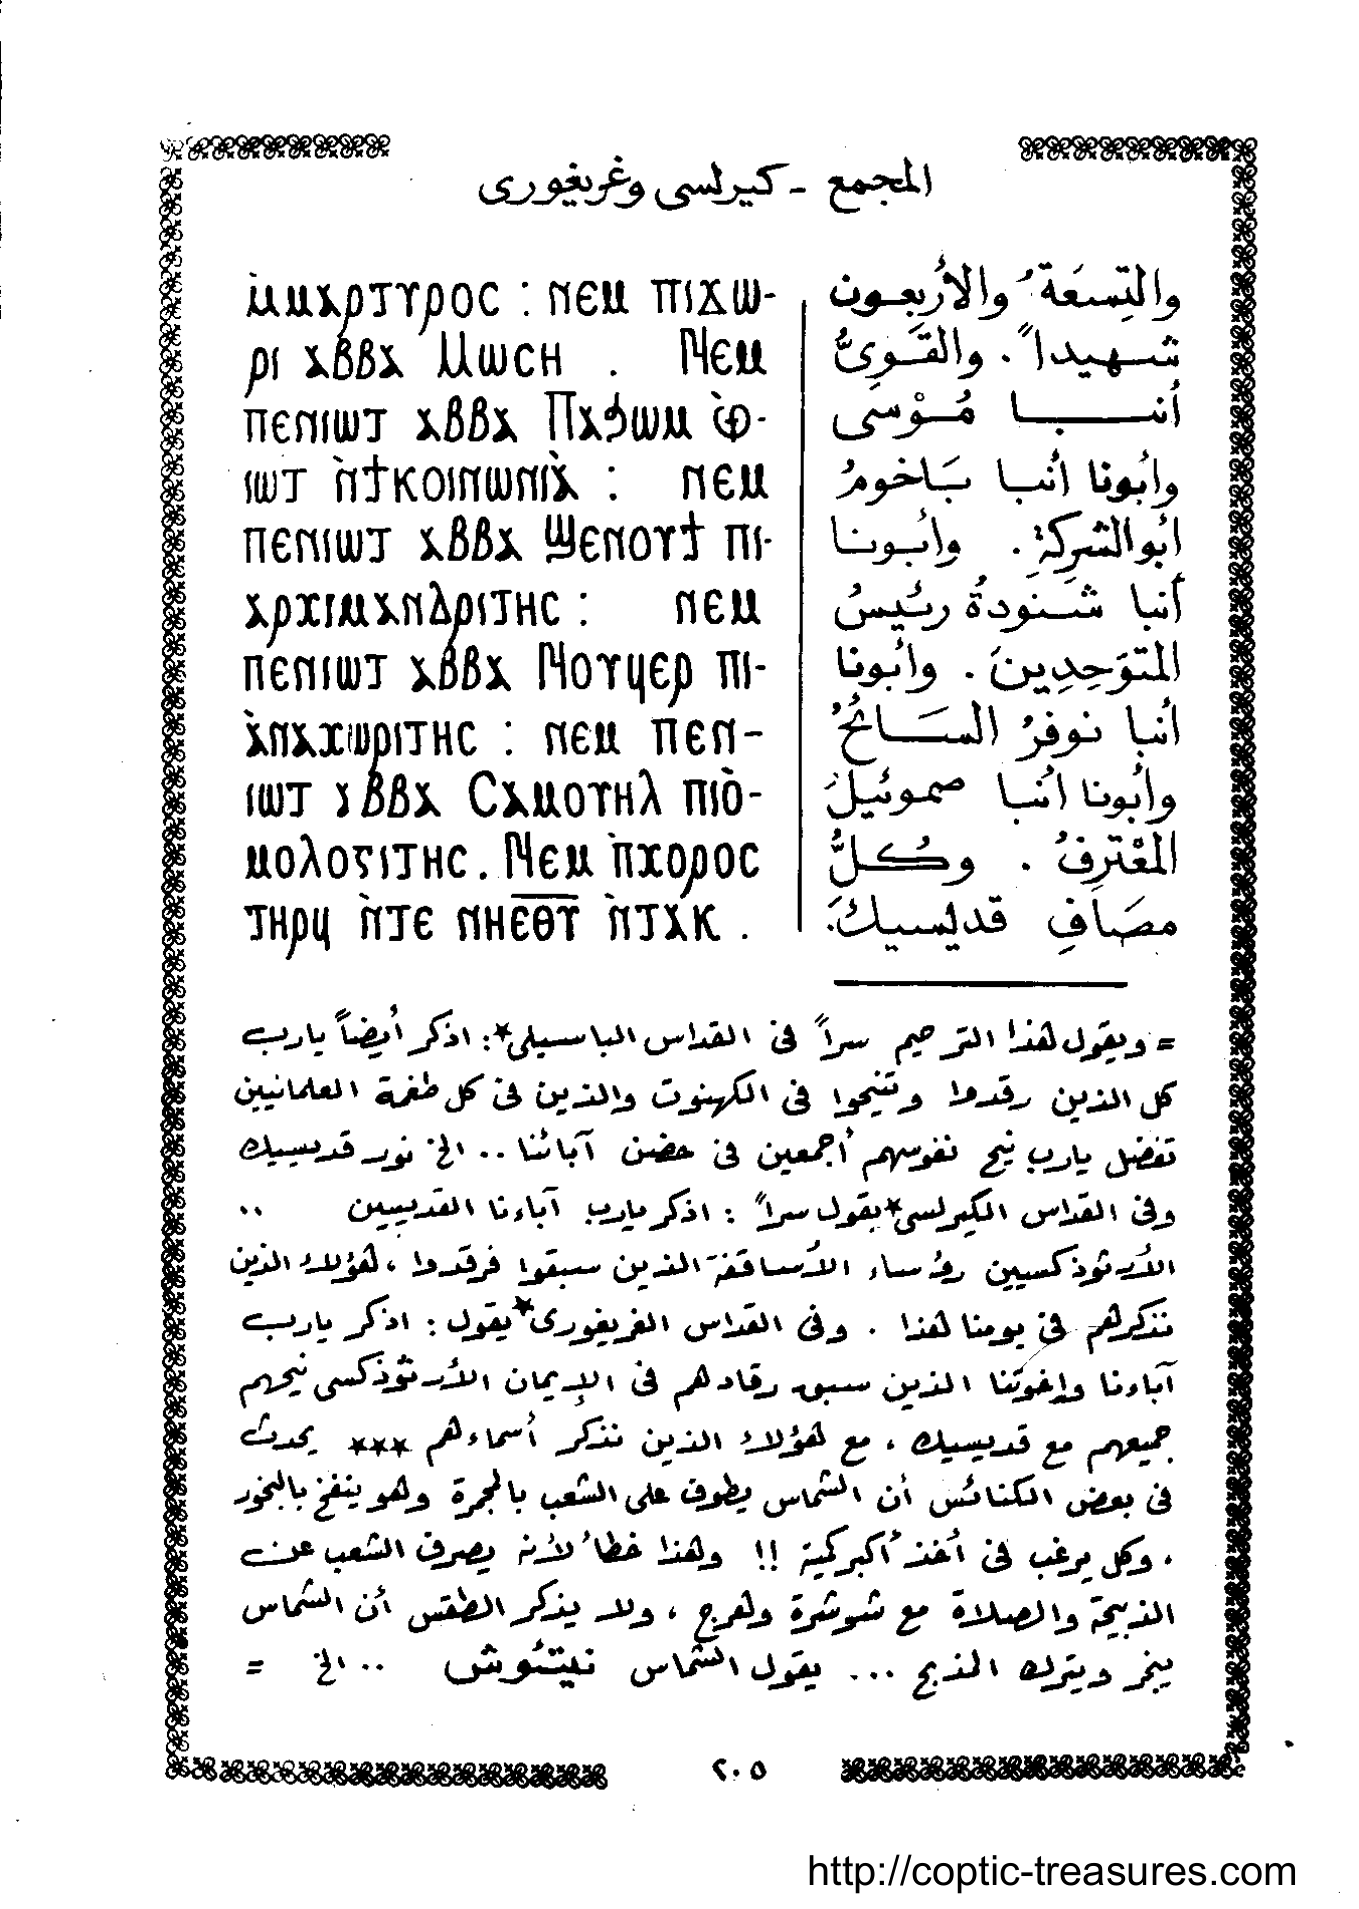 المجمع - كيرلسى وغريغورى
ⲙ̀ⲙⲁⲣⲧⲩⲣⲟⲥ : ⲛⲉⲙ ⲡⲓϫⲱ-
ⲣⲓ ⲁⲃⲃⲁ Ⲙⲱⲥⲏ . Ⲛⲉⲙ
ⲡⲉⲛⲓⲱⲧ ⲁⲃⲃⲁ Ⲡⲁϧⲱⲙ ⲫ̀-
ⲓⲱⲧ ⲛ̀ϯⲕⲟⲓⲛⲱⲛⲓⲁ̀ : ⲛⲉⲙ
ⲡⲉⲛⲓⲱⲧ ⲁⲃⲃⲁ Ϣⲉⲛⲟⲩϯ ⲡⲓ-
ⲁⲣⲭⲓⲙⲁⲛⲇⲣⲓⲧⲏⲥ : ⲛⲉⲙ
ⲡⲉⲛⲓⲱⲧ ⲁⲃⲃⲁ Ⲛⲟⲩϥⲉⲣ ⲡⲓ-
ⲁ̀ⲛⲁⲭⲱⲣⲓⲧⲏⲥ : ⲛⲉⲙ ⲡⲉⲛ-
ⲓⲱⲧ ⲁⲃⲃⲁ Ⲥⲁⲙⲟⲩⲏⲗ ⲡⲓⲟ̀-
ⲙⲟⲗⲟⲅⲓⲧⲏⲥ . Ⲛⲉⲙ ⲡ̀ⲭⲟⲣⲟⲥ
ⲧⲏⲣϥ ⲛ̀ⲧⲉ ⲛⲏⲉ̅ⲑ̅ⲩ̅ ⲛ̀ⲧⲁⲕ .
والتِسعَةُ والأربعون
شهيداً . والقَوِىُّ
أنبا مُوْسَى
وأبونا أنبا بَاخومُ
أبوالشركةِ . وأبونا
أنبا شنودةُ رئيسُ
المتوَحِدِينَ . وأبونا
أنبا نوفرُ السَائحُ
وأبونا أنبا صموئيلُ
المعْترِفُ . وكُلُّ
مصَافِ قديسيكَ.
= ويقول هذا الترحيم سراً فى القداس الباسيلى*: اذكر أيضاً يارب
كل الذين رقدوا وتنيحوا فى الكهنوت والذين فى كل طغمة العلمانيين
تفضل يارب نيح نفوسهم أجمعين فى حضن آبائنا .. الخ نور قديسيك
وفى القداس الكيرلسى* يقول سراً : اذكر يارب آباءنا القديسين ..
الأرثوذكسيين رؤساء الأساقفة الذين سبقوا فرقدوا ، هؤلاء الذين
نذكرهم فى يومنا هذا . وفى القداس الغريغورى* يقول : اذكر يارب
آباءنا وإخوتنا الذين سبق رقادهم فى الإيمان الأرثوذكسى نيحهم
جميعهم مع قديسيك ، مع هؤلاء الذين نذكر أسماءهم *** يحدث
فى بعض الكنائس أن الشماس يطوف على الشعب بالمجمرة وهو ينفخ بالبخور
، وكل يرغب فى أخذ أكبر كمية !! وهذا خطأ لأنه يصرف الشعب عن
الذبيحة والصلاة مع شوشرة وهرج ، ولا يذكر الطقس أن الشماس
يبخر ويترك المذبح ... يقول الشماس نيتئوش .. الخ =
٢٠٥
http://coptic-treasures.com